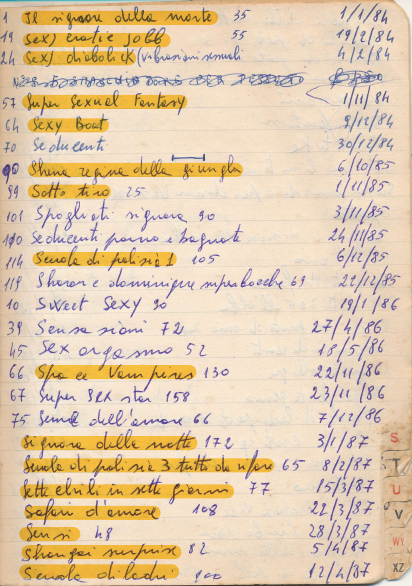 1 Il signore della morte 35 1/1/84
19 Sexy erotic Jobb 55 19/2/84
24 Sexy diabolick (vibrazioni sensuali 4/2/84
57 Super Sexual Fantasy 1/11/84
64 Sexy Boat 9/12/84
70 Seducenti 30/12/84
90 Sheena regina della giungla 6/10/85
99 Sotto tiro 25 1/11/85
101 Spogliati signora 90 3/11/85
Seducenti porno e bagnate 24/11/85
114 Scuola di polizia 1 105 6/12/85
119 Sharon e dominique 69 22/12/85
10 Sweet Sexy 90 19/1/86
39 Sensazioni 72 27/4/86
45 Sex orgasmo 52 18/5/86
66 Spa ce Vampires 130 22/11/86
67 Super sex star 158 23/11/86
75 dell'amore 66 7/12/86
Signora della notte 172 3/1/87
Scuola di polizia 3 tutto da rifare 65 8/2/87
Sette chili in sette giorni 77 15/3/87
Safari d'amore 108 22/3/87
Sensi 48 28/3/87
Shangai surprise 82 5/4/87
Scuola di ladri 12/4/87
S
T
U
V
WY
XZ